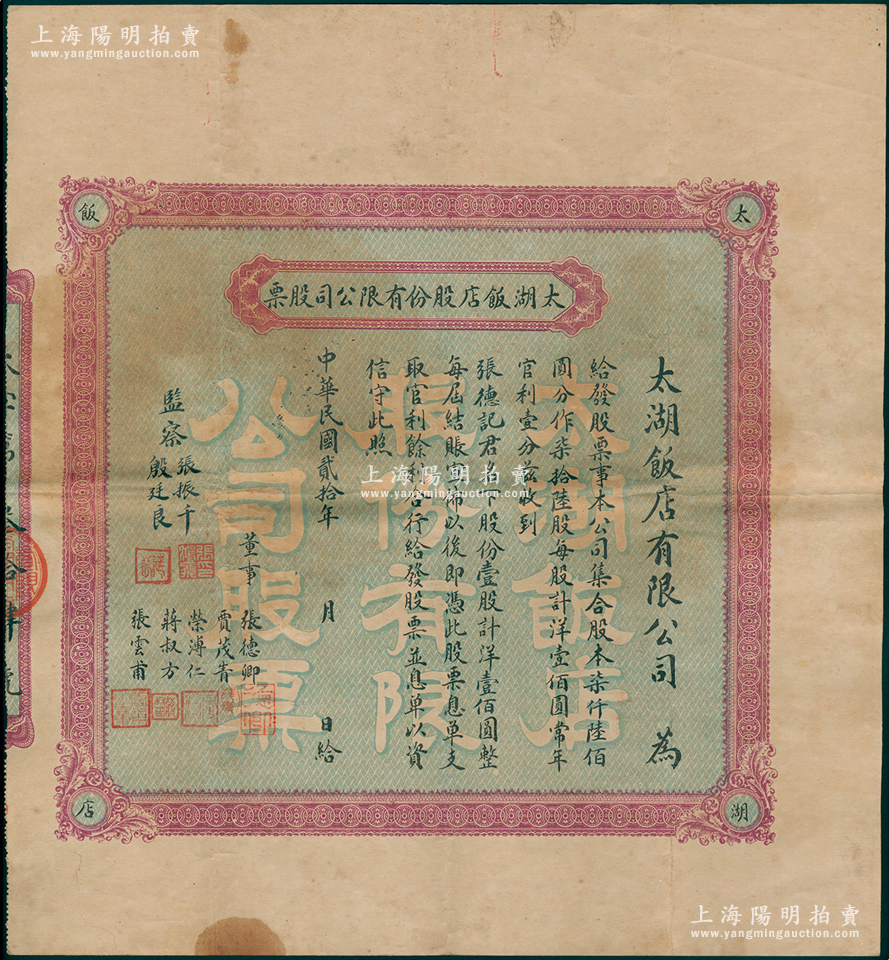 上海陽明拍賣
www.yangmingauction.com
太
湖
飯
店
太湖飯店股份有限公司股票
太湖飯店有限公司 為
給發股票事本公司集合股本柒仟陸佰
圓分作柒拾陸股每股計洋壹佰圓常年
官利壹分茲收到
張德記君名下股份壹股計洋壹佰圓整
每屆結賬宣佈以後即憑此股票息單支
取官利餘利合行給發股票並息單以資
信守此照
中華民國貳拾年 月 日給
董事 張德卿
賈茂青
榮溥仁
蔣叔方
張雲甫
監察 張振千
殷廷良
太湖飯店
股份有限
公司股票
上海陽明拍賣
www.yangmingauction.com
上海陽明拍賣
www.yangmingauction.com